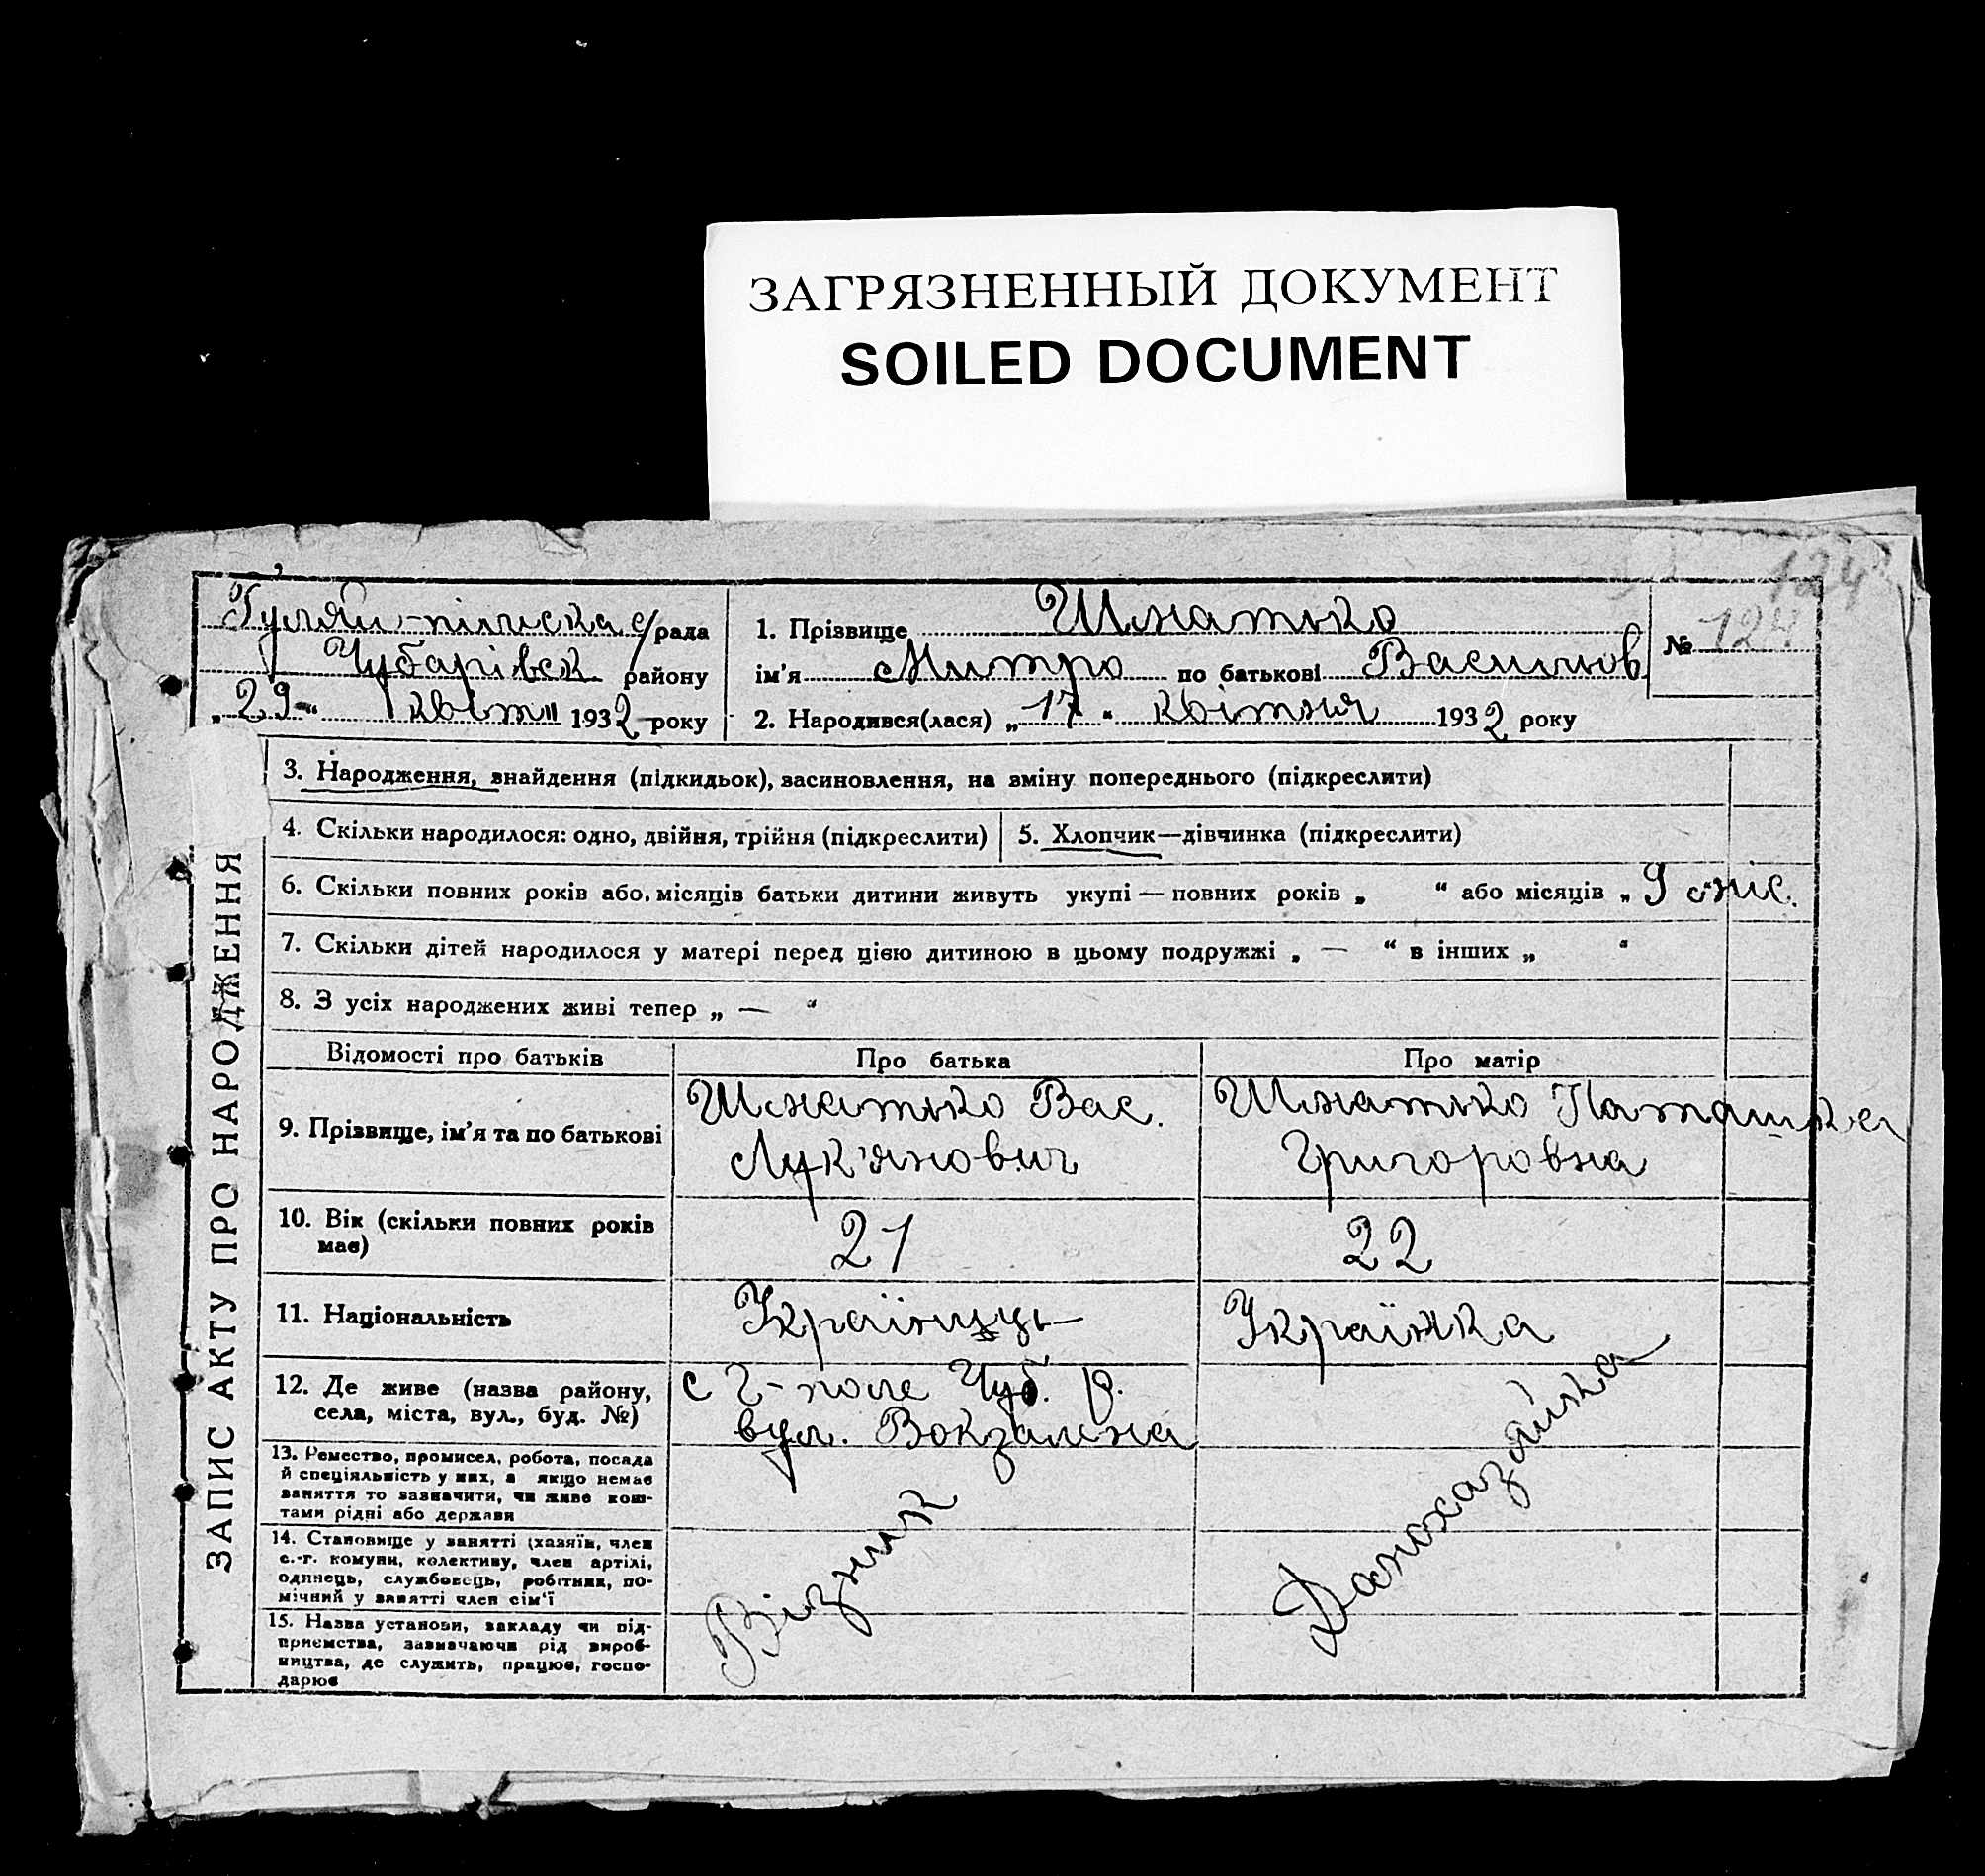 ЗАГРЯЗНЕННЫЙ ДОКУМЕНТ
SOILED DOCUMENT
124
ЗАПИС АКТУ ПРО НАРОДЖЕННЯ
Гуляй-пільска с/рада
Чубарівск. району
„29“ квітн 1932 року
1. Прізвище Шматько
ім'я Митро по батькові Васильов
2. Народився(лася) „17“ квітня 1932 року
№ 124
3. Народження, знайдення (підкидьок), засиновлення, на зміну попереднього (підкреслити)
4. Скільки народилося: одно, двійня, трійня (підкреслити)
5. Хлопчик—дівчинка (підкреслити)
6. Скільки повних років або місяців батьки дитини живуть укупі — повних років „ “ або місяців „ 9 міс.
7. Скільки дітей народилося у матері перед цією дитиною в цьому подружжі „ — “ в інших „ “
8. З усіх народжених живі тепер „ — “
Відомості про батьків
Про батька
Про матір
9. Прізвище, ім'я та по батькові
Шматько Вас.
Лук'янович
Шматько Наташка
Григоровна
10. Вік (скільки повних років
має)
21
22
11. Національність
Українць
Українка
12. Де живе (назва району,
села, міста, вул., буд. №)
с Г-поле Чуб. р.
вул. Вокзальна
13. Ремество, промисел, робота, посада
й спеціяльність у них, а якщо немає
заняття то зазначити, чи живе кош-
тами рідні або держави
14. Становище у занятті (хазяїн, член
с.-г. комуни, колективу, член артілі,
одинець, службовець, робітник, по-
мічний у занятті член сім'ї
15. Назва установи, закладу чи під-
приємства, зазначаючи рід вироб-
ництва, де служить, працює, госпо-
дарює
Візник
Домохазяйка